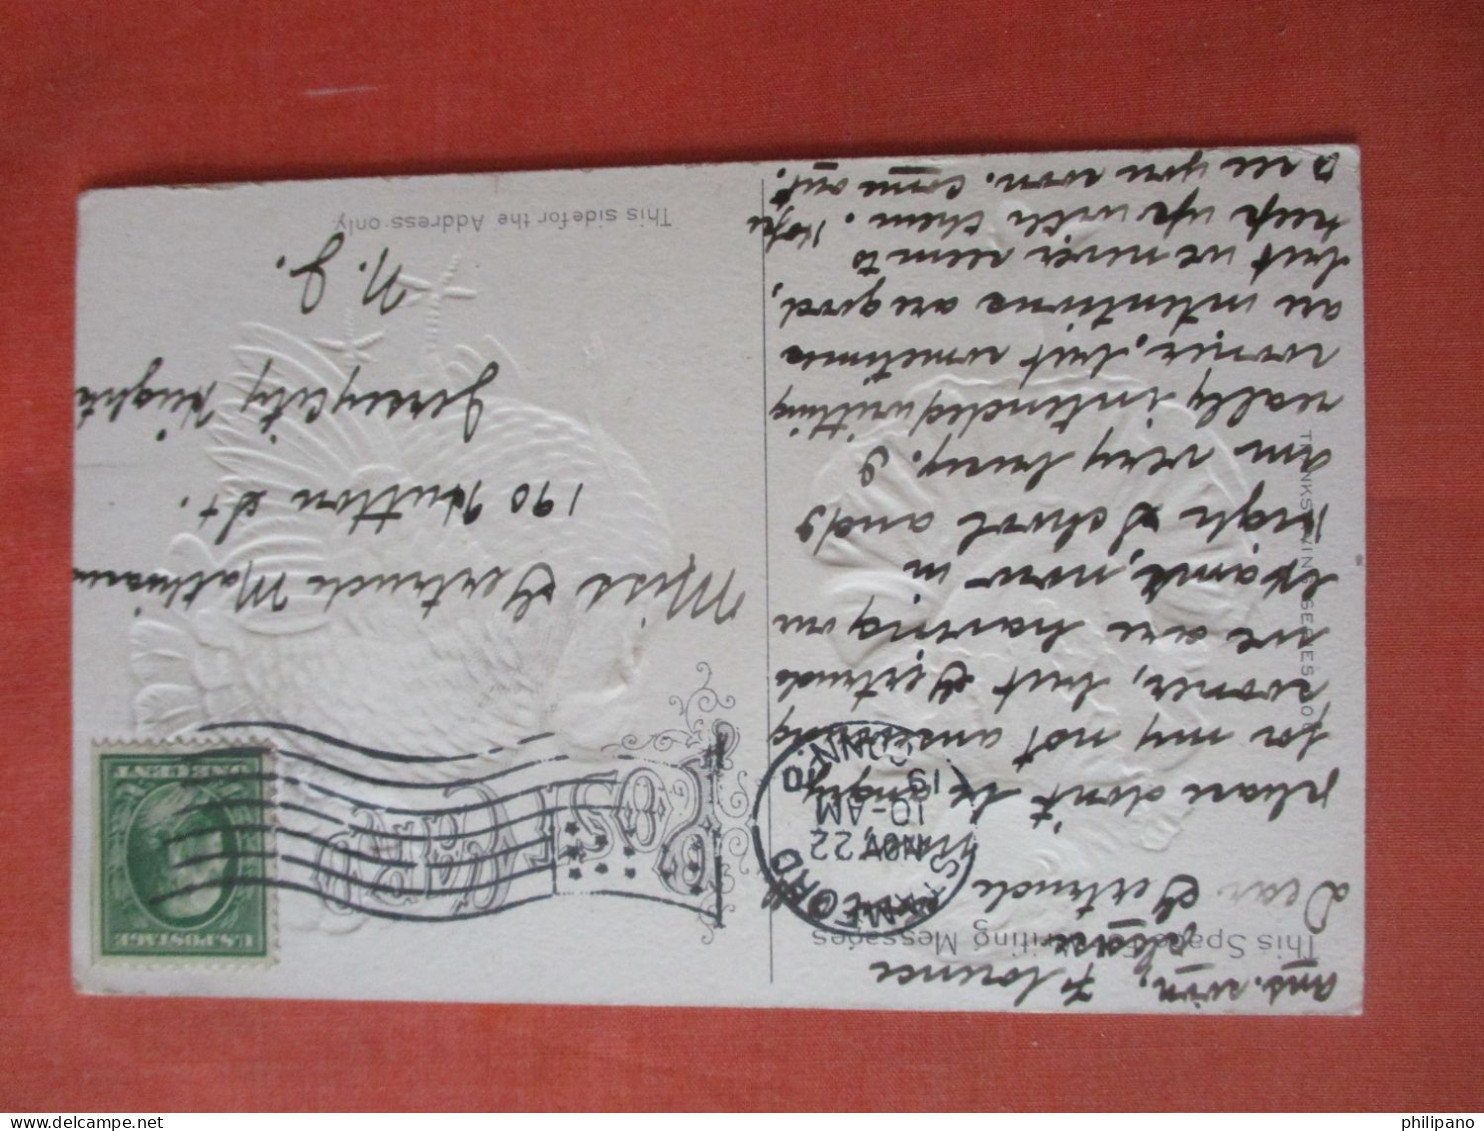 This Space For Writing Messages
Ans. soon, Florence
please
Dear Gertrude
please don't be angry
for my not answering
sooner, but Gertrude
we are having our
exams, now in
High School and I
am very busy. I
really intended writting
sooner, but sometimes
are intentions are good,
but we never seem to
keep up with them. Hope
to see you soon. Come out.
THANKSGIVING SERIES
This side for the Address only.
STAMFORD
NOV. 22
10-AM
1910
CONN.
U.S. POSTAGE
ONE CENT
Miss Gertrude
190 Hutton St.
Jersey City Heights
N. J.
philipano